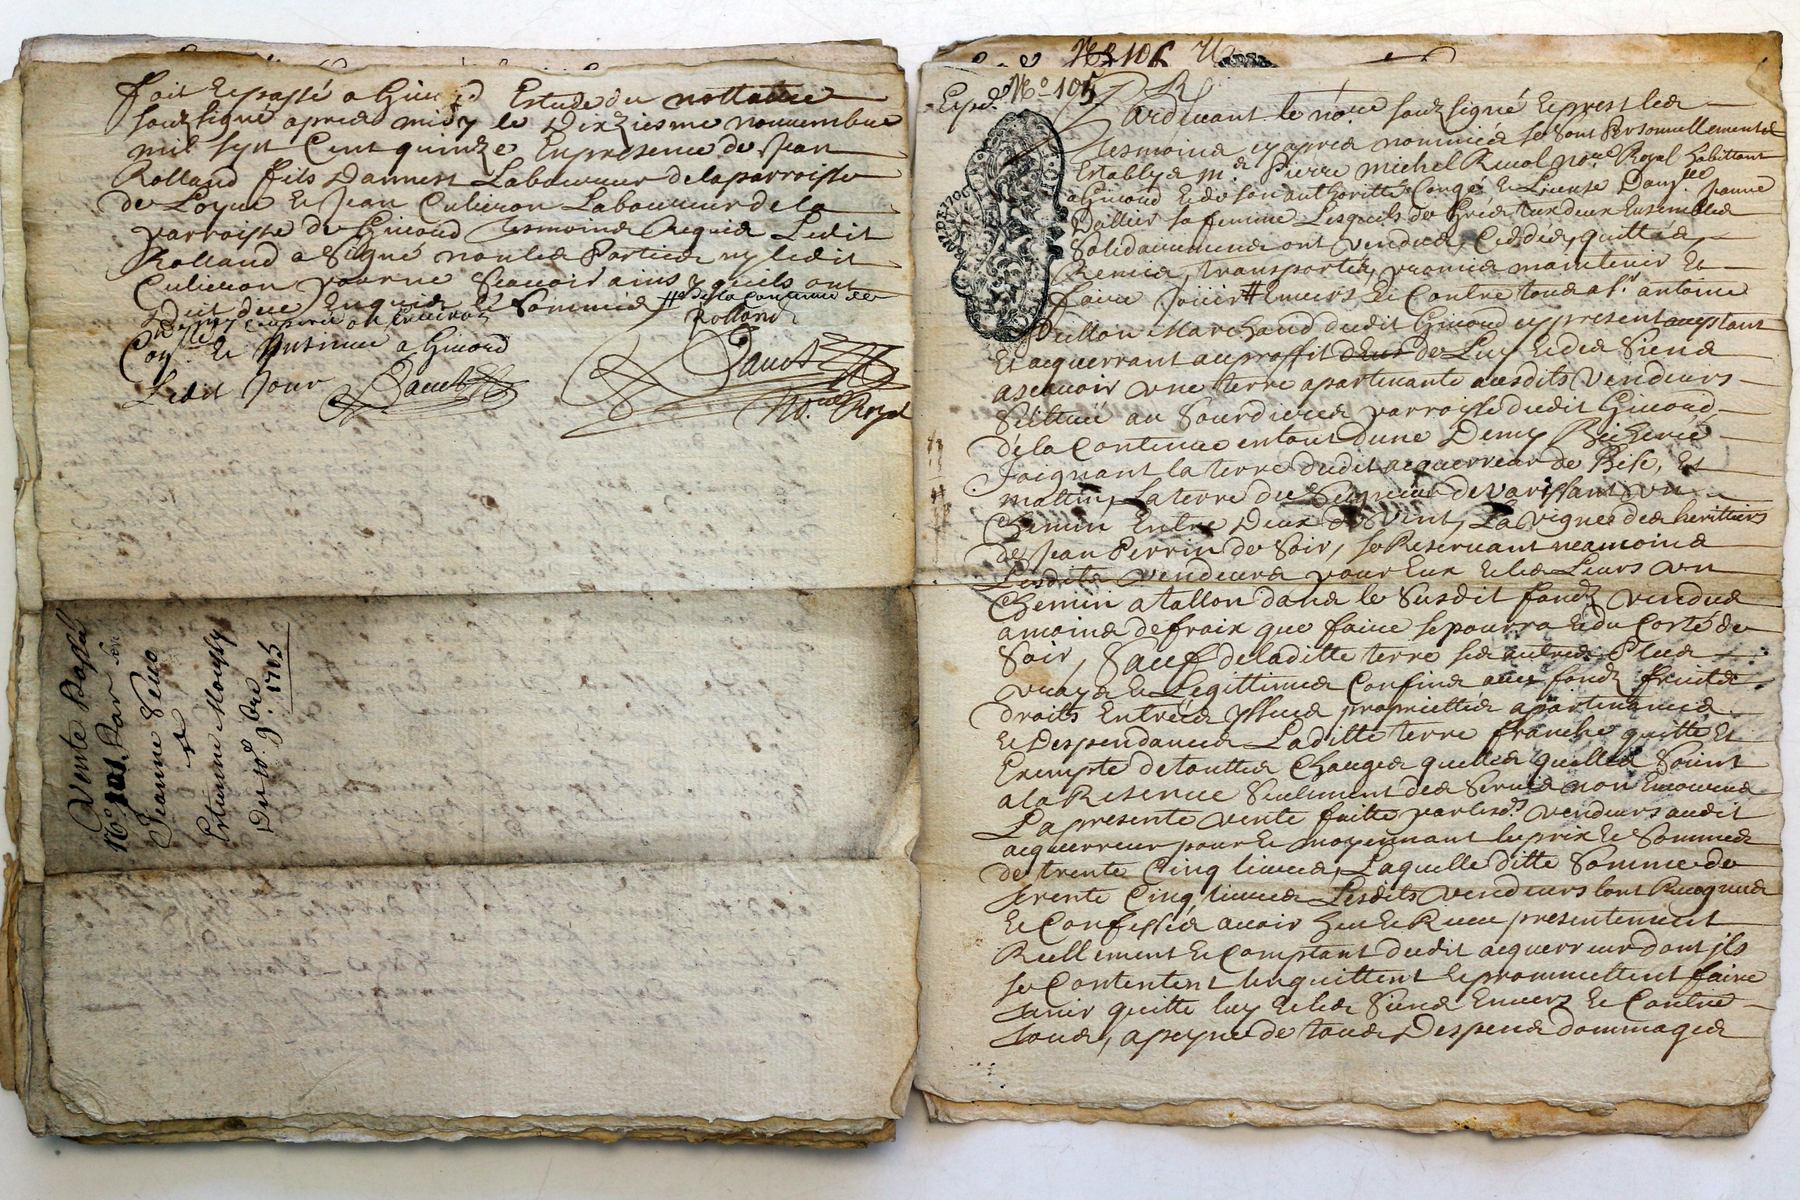 fait et passé a Givord Estude du nottaire
soubsigné apres midy le Dixziesme nouvembre
mil sept Cent quinze En presence de Jean
Rolland fils Laboureur de la parroisse
de Loyre et Jean Culieron Laboureur de la
parroisse de Givord tesmoins Requis Ledit
Rolland a Signé non les Parties ny ledit
Culieron pour ne Scavoir ainsy quils ont
dit de ce Enquis et Sommés # de la contenue de
Rolland
a Givord
Ledit Jour Dauet
Dauet
No.re Royal
Vente
No. 101. Par
Jeanne
a
Estienne
Du 10e 9bre
1715
No 106
Exped. No 105
Pardevant le no.re soubsigné et presents les
tesmoins cy apres nommés se sont Personnellement
Establys m.e Pierre michel no.re Royal habittant
a Givord et de son authoritté Congé et Licence Jeanne
Dallier sa femme Lesquels de Gré tux deux Ensembles
Solidairement ont vendus, Ceddés, quittés,
Remis, transportés, promis maintenir Et
faire Jouir # Envers Et Contre tous a s.r antoine
Marchand dudit Givord cy present aceptant
Et acquerrant au proffit de Luy et des Siens
ascavoir une terre apartenante ausdits vendeurs
Scittuée au Sourdieres parroisse dudit Givord
de la Contenue en tout dune Demy Bicherée
Joignant la terre dudit acquerreur de Bise, Et
matin, La terre du Seigneur de un
Chemin Entre Deux de Vent, La vigne des herittiers
de Jean Perrin de Soir, se Reservant neamoins
Lesdits vendeurs pour Eux et les Leurs un
Chemin a tallon dans le Susdit fondz vendus
a moins de fraix que faire se pourra et du Costé de
Soir, Sauf de laditte terre ses autres Plus
vrays et Legittimes Confins avec fondz fruits
droits Entrées yssues proprietties apartenances
et Despendances Laditte terre franche quitte Et
Exempte de touttes Charges quelles quelles Soient
a la Reserve Seulement des Servis non Encourus
La presente vente faitte par lesd.s vendeurs audit
acquerreur pour et moyennant le prix et Sommes
de trente Cinq livres, Laquelle ditte Somme de
trente Cinq livres Lesdits vendeurs Sont Recognus
et Confessés avoir heu et Receu presentement
Reellement et Comptant dudit acquerreur dont jls
se Contentent Lenquittent et prommettent faire
tenir quitte luy et les Siens Envers et Contre
tous, a peyne de tous, Despens dommages